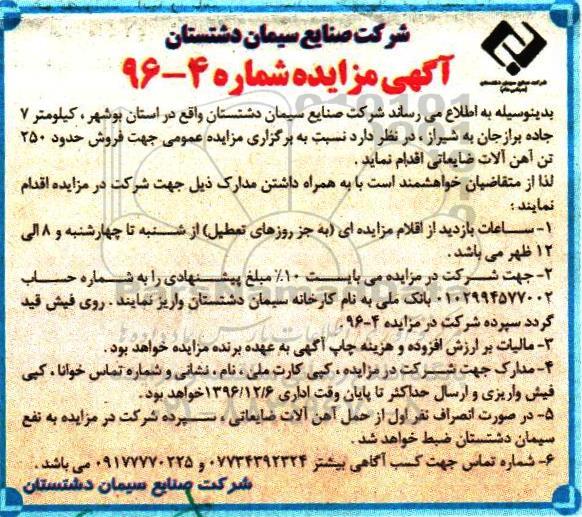 شرکت صنایع سیمان دشتستان
آگهی مزایده شماره ۴-۹۶
شرکت صنایع سیمان دشتستان
(سهامی عام)
بدینوسیله به اطلاع می رساند شرکت صنایع سیمان دشتستان واقع در استان بوشهر ، کیلومتر ۷
جاده برازجان به شیراز ، در نظر دارد نسبت به برگزاری مزایده عمومی جهت فروش حدود ۲۵۰
تن آهن آلات ضایعاتی اقدام نماید .
لذا از متقاضیان خواهشمند است با به همراه داشتن مدارک ذیل جهت شرکت در مزایده اقدام
نمایند :
۱- ساعات بازدید از اقلام مزایده ای (به جز روزهای تعطیل) از شنبه تا چهارشنبه و ۸ الی
۱۲ ظهر می باشد .
۲- جهت شرکت در مزایده می بایست ۱۰٪ مبلغ پیشنهادی را به شماره حساب
۰۱۰۲۹۹۴۵۷۷۰۰۲ بانک ملی به نام کارخانه سیمان دشتستان واریز نمایند . روی فیش قید
گردد سپرده شرکت در مزایده ۴-۹۶.
۳- مالیات بر ارزش افزوده و هزینه چاپ آگهی به عهده برنده مزایده خواهد بود .
۴- مدارک جهت شرکت در مزایده ، کپی کارت ملی ، نام ، نشانی و شماره تماس خوانا ، کپی
فیش واریزی و ارسال حداکثر تا پایان وقت اداری ۱۳۹۶/۱۲/۶خواهد بود .
۵- در صورت انصراف نفر اول از حمل آهن آلات ضایعاتی ، سپرده شرکت در مزایده به نفع
سیمان دشتستان ضبط خواهد شد .
۶- شماره تماس جهت کسب آگاهی بیشتر ۰۷۷۳۴۳۹۲۳۲۴ و ۰۹۱۷۷۷۷۰۲۲۵ می باشد .
شرکت صنایع سیمان دشتستان